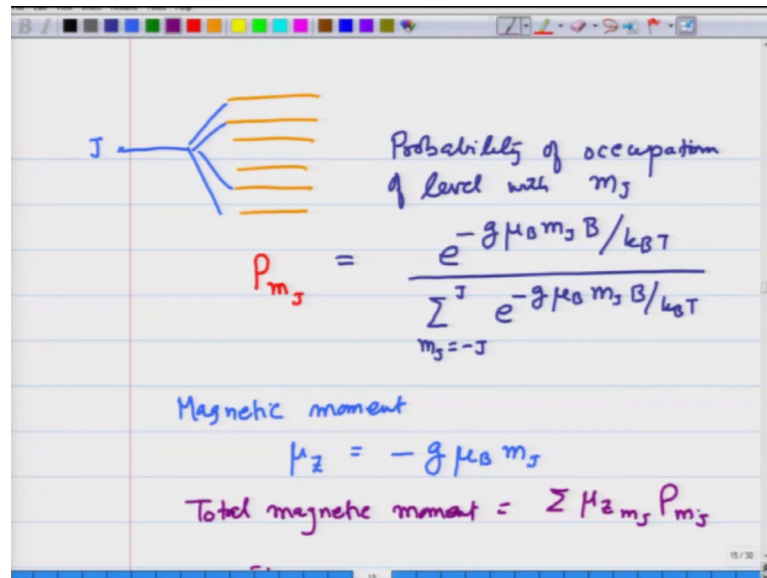 J
Probability of occupation
of level with m_J
P_{m_J} = \frac{e^{-g μ_B m_J B / k_B T}}{\sum_{m_J = -J}^{J} e^{-g μ_B m_J B / k_B T}}
Magnetic moment
μ_z = - g μ_B m_J
Total magnetic moment = Σ μ_{z m_J} P_{m_J}
15/30